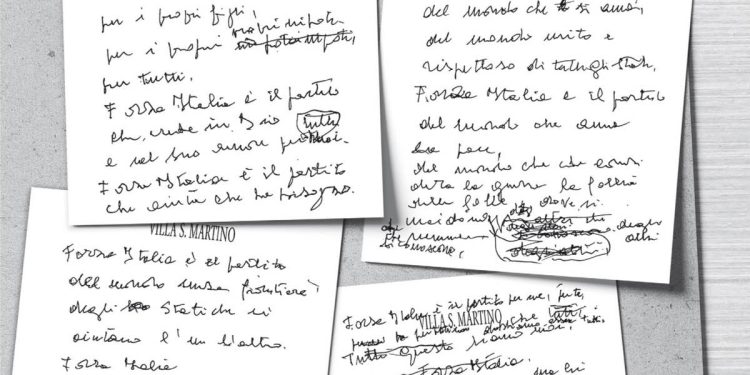 per i propri figli,
per i propri propri nipoti
per tutti.
Forza Italia è il partito
che crede in Dio
e nel suo amore per noi.
Forza Italia è il partito
che aiuta chi ha bisogno.
del mondo che si ama,
del mondo unito e
rispettoso di tutti gli Stati.
Forza Italia è il partito
del mondo che ama
la pace,
del mondo che consi
dera la guerra la follia
delle follie, dove si
uccidono
degli
che nemmeno
altri
si conoscono,
VILLA S. MARTINO
Forza Italia è il partito
del mondo senza frontiere,
degli Stati che si
aiutano l'un l'altro.
Forza Italia
Forza Italia è il partito per me,
VILLA S. MARTINO
che
Tutto questo siamo noi.
Forza Italia